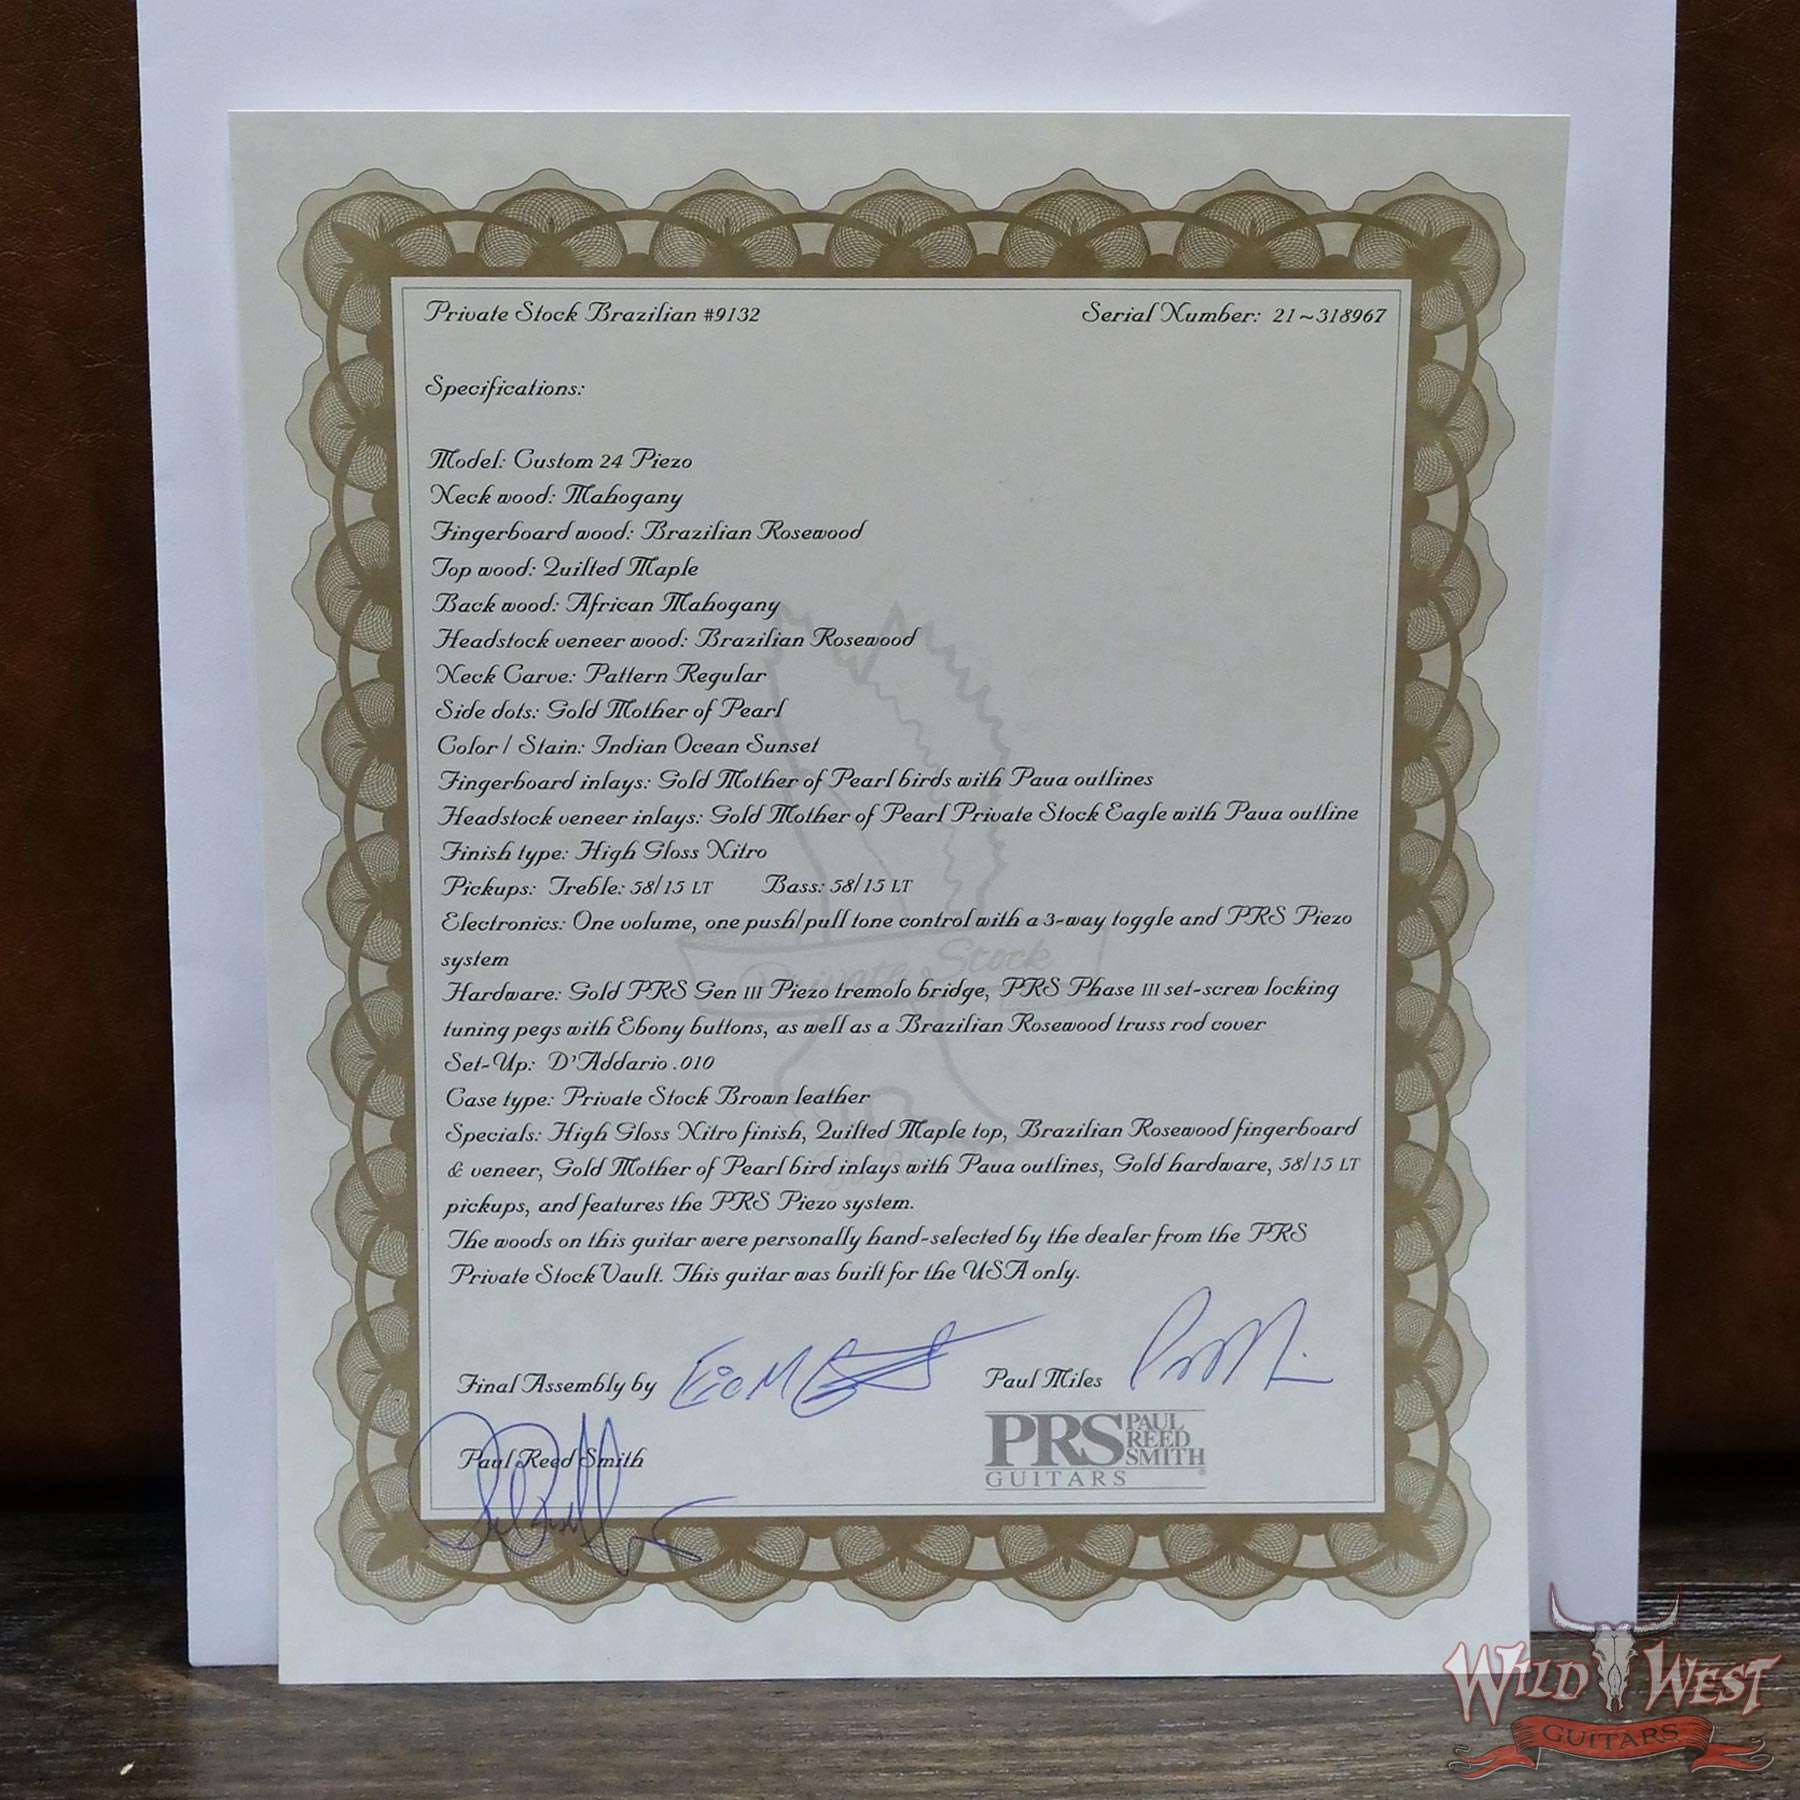 Private Stock Brazilian #9132
Serial Number: 21~318967
Specifications:
Model: Custom 24 Piezo
Neck wood: Mahogany
Fingerboard wood: Brazilian Rosewood
Top wood: Quilted Maple
Back wood: African Mahogany
Headstock veneer wood: Brazilian Rosewood
Neck Carve: Pattern Regular
Side dots: Gold Mother of Pearl
Color / Stain: Indian Ocean Sunset
Fingerboard inlays: Gold Mother of Pearl birds with Paua outlines
Headstock veneer inlays: Gold Mother of Pearl Private Stock Eagle with Paua outline
Finish type: High Gloss Nitro
Pickups: Treble: 58/15 LT Bass: 58/15 LT
Electronics: One volume, one push/pull tone control with a 3-way toggle and PRS Piezo
system
Private Stock
Hardware: Gold PRS Gen III Piezo tremolo bridge, PRS Phase III set-screw locking
tuning pegs with Ebony buttons, as well as a Brazilian Rosewood truss rod cover
Set-Up: D'Addario .010
Case type: Private Stock Brown leather
Specials: High Gloss Nitro finish, Quilted Maple top, Brazilian Rosewood fingerboard
& veneer, Gold Mother of Pearl bird inlays with Paua outlines, Gold hardware, 58/15 LT
pickups, and features the PRS Piezo system.
The woods on this guitar were personally hand-selected by the dealer from the PRS
Private Stock Vault. This guitar was built for the USA only.
Final Assembly by
Paul Miles
Paul Reed Smith
PRS PAUL
REED
SMITH
GUITARS
WILD WEST
GUITARS